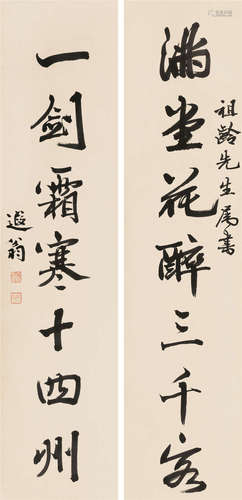 祖龄先生属书
满堂花醉三千客
一剑霜寒十四州
遐翁